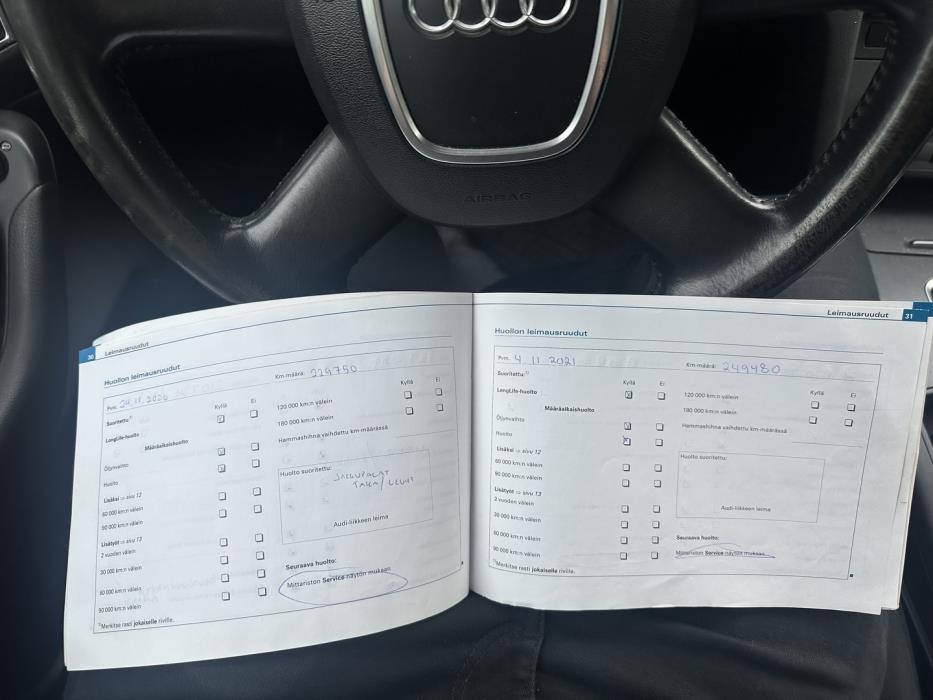 AIRBAG
30 Leimausruudut
Huollon leimausruudut
Pvm. 24.11.2020 Km-määrä: 229750
Suoritettu:¹⁾ Kyllä Ei Kyllä Ei
LongLife-huolto 120 000 km:n välein
Määräaikaishuolto 180 000 km:n välein
Öljynvaihto Hammashihna vaihdettu km-määrässä
Huolto
Lisäksi ⇒ sivu 12 Huolto suoritettu:
60 000 km:n välein JARRUPALAT
90 000 km:n välein TAKA / LEVYT
Lisätyöt ⇒ sivu 13 Audi-liikkeen leima
2 vuoden välein
30 000 km:n välein Seuraava huolto:
60 000 km:n välein Mittariston Service-näytön mukaan
90 000 km:n välein
¹⁾Merkitse rasti jokaiselle riville.
Leimausruudut 31
Huollon leimausruudut
Pvm. 4.11.2021 Km-määrä: 249480
Suoritettu:¹⁾ Kyllä Ei Kyllä Ei
LongLife-huolto 120 000 km:n välein
Määräaikaishuolto 180 000 km:n välein
Öljynvaihto Hammashihna vaihdettu km-määrässä
Huolto
Lisäksi ⇒ sivu 12 Huolto suoritettu:
60 000 km:n välein
90 000 km:n välein
Lisätyöt ⇒ sivu 13
2 vuoden välein Audi-liikkeen leima
30 000 km:n välein
60 000 km:n välein Seuraava huolto:
90 000 km:n välein Mittariston Service-näytön mukaan
¹⁾Merkitse rasti jokaiselle riville.